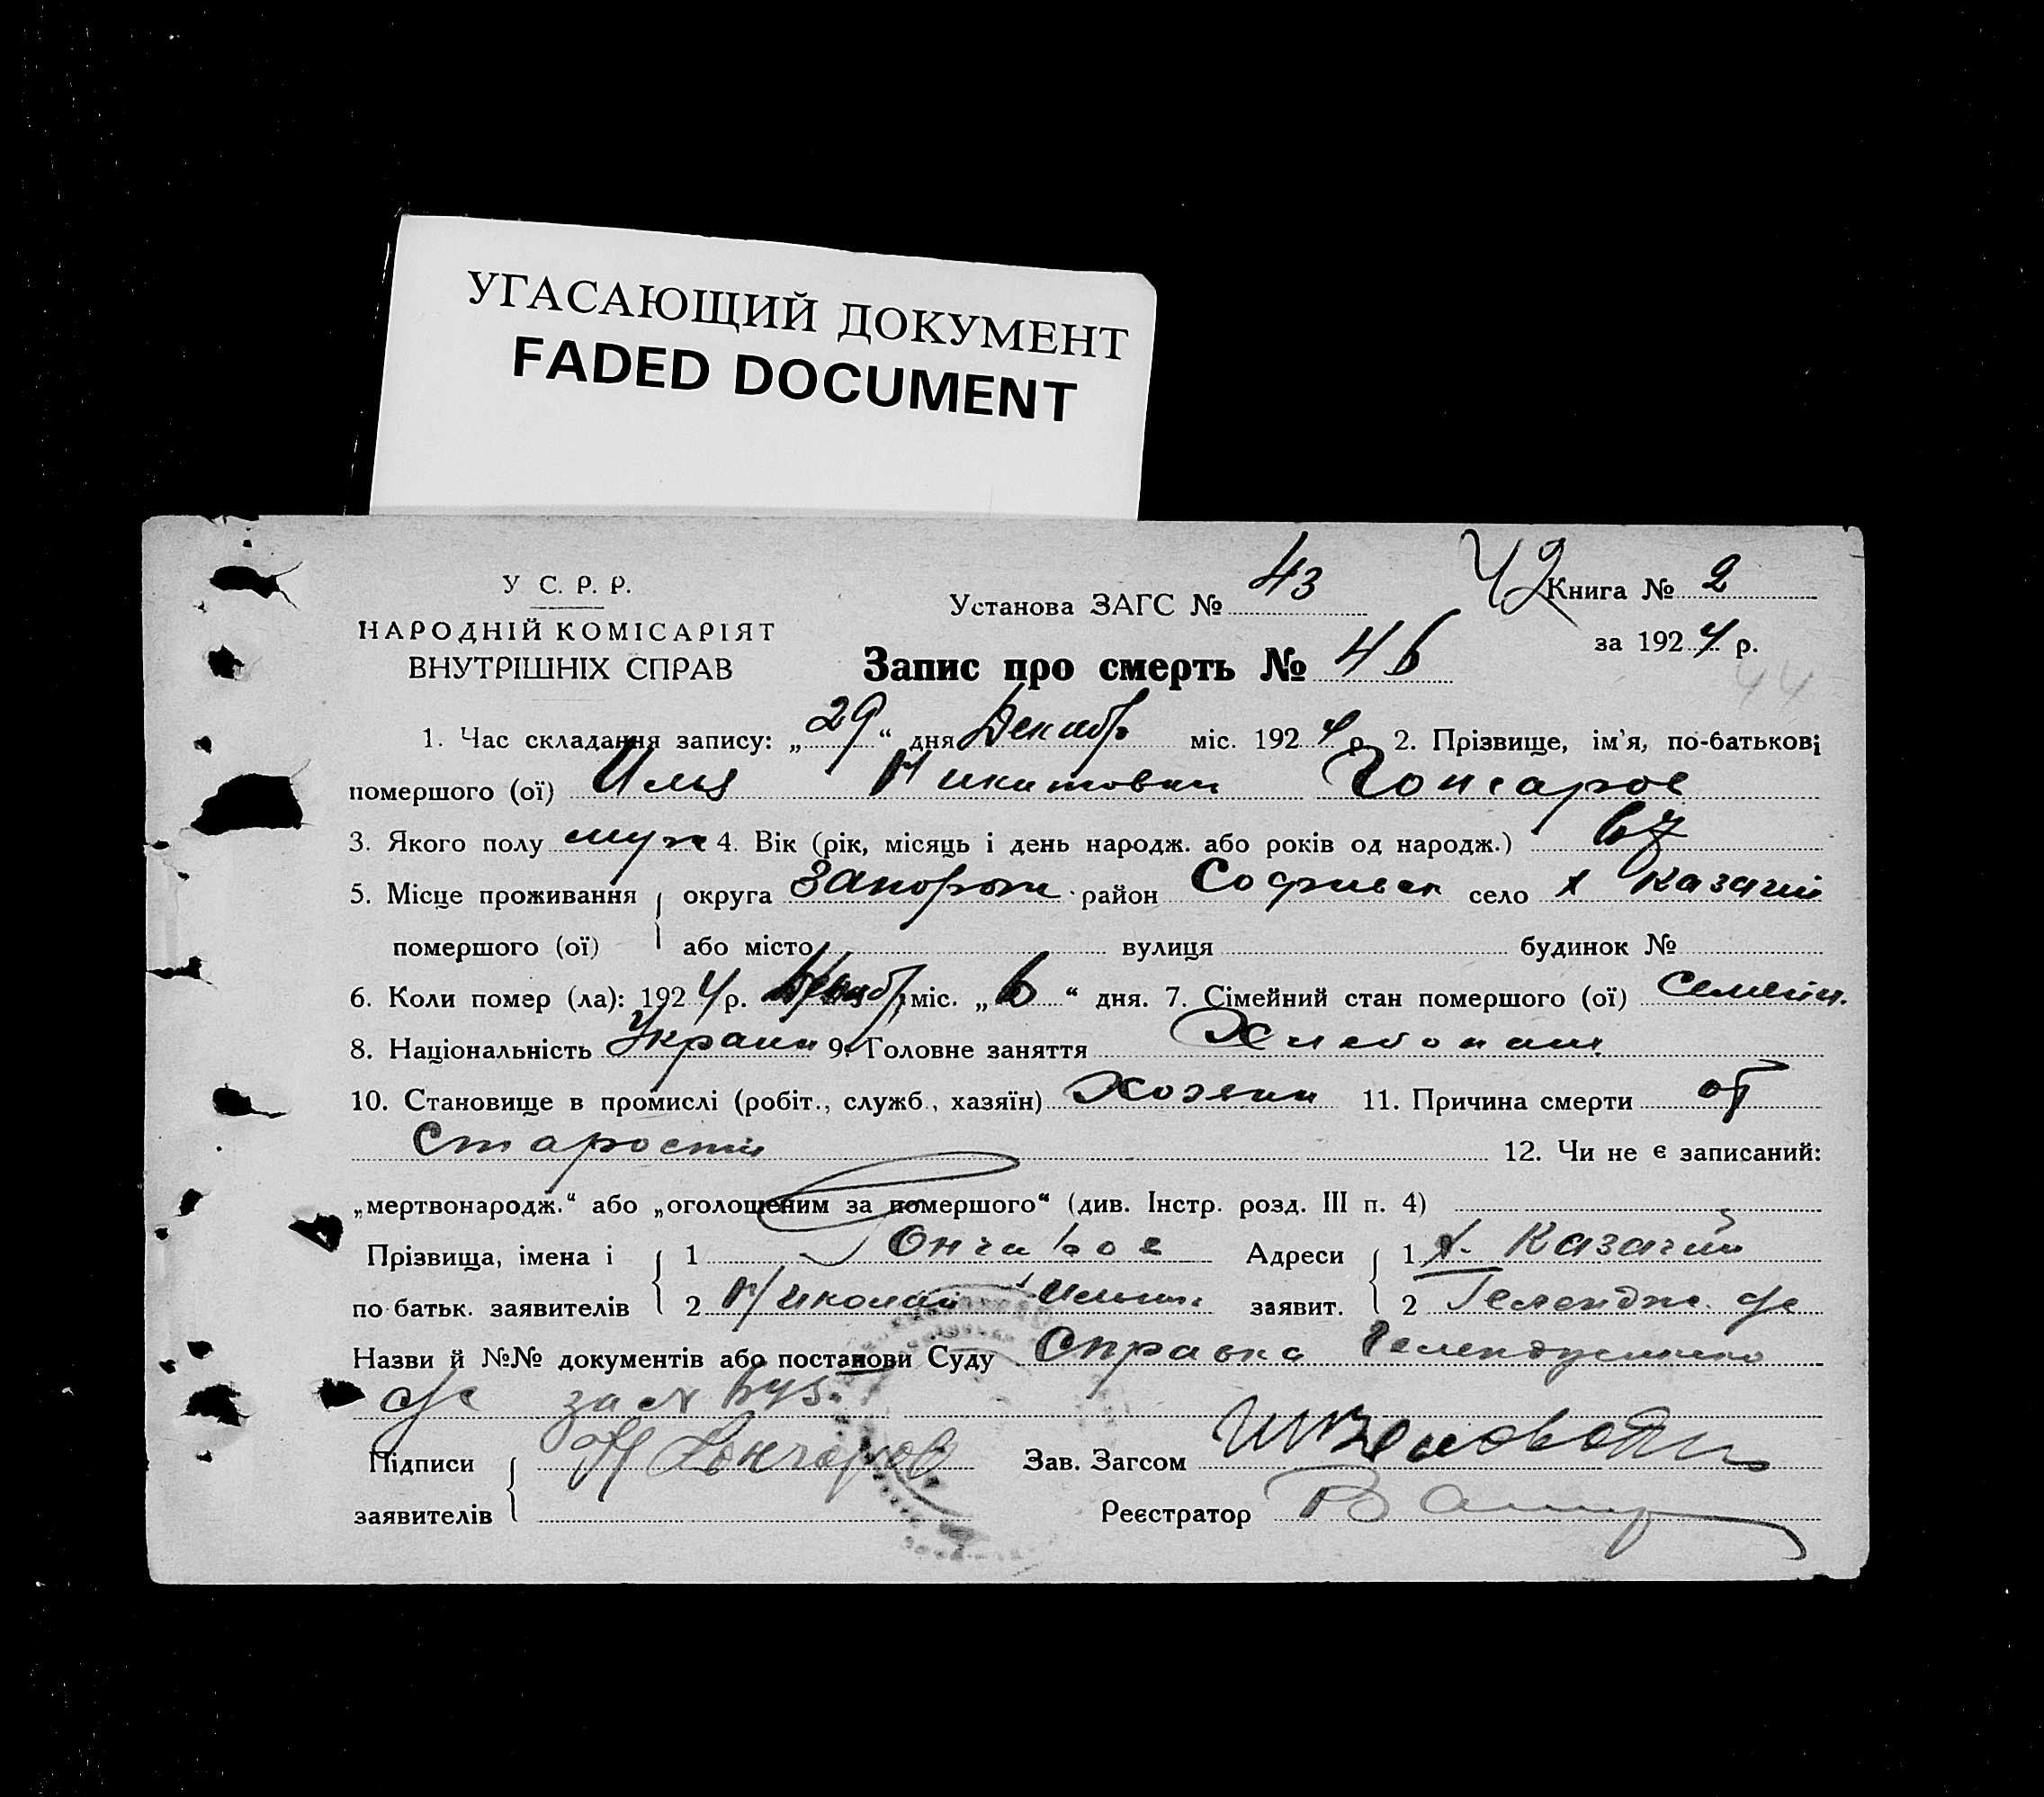 УГАСАЮЩИЙ ДОКУМЕНТ
FADED DOCUMENT
У С. Р. Р.
НАРОДНІЙ КОМІСАРІЯТ
ВНУТРІШНІХ СПРАВ
Установа ЗАГС № 43
42 Книга № 2
за 1924 р.
Запис про смерть № 46
44
1. Час складання запису: „29“ дня Декабр міс. 1924 р. 2. Прізвище, ім’я, по-батькові
помершого (ої) Илья Никитович Гончаров
3. Якого полу муж 4. Вік (рік, місяць і день народж. або років од народж.) 67
5. Місце проживання округа Запорож район Софиевск село х Казачий
помершого (ої) або місто вулиця будинок №
6. Коли помер (ла): 1924 р. міс. „6“ дня. 7. Сімейний стан помершого (ої) Семейн.
8. Національність Украин 9. Головне заняття Хлебопаш
10. Становище в промислі (робіт., служб., хазяїн) Хозяин 11. Причина смерти от
Старости 12. Чи не є записаний:
„мертвонародж.“ або „оголошеним за померш​ого“ (див. Інстр. розд. III п. 4)
Прізвища, імена і 1 Гончаров Адреси 1 х. Казачий
по батьк. заявителів 2 Николай Ильич заявит. 2
Назви й №№ документів або постанови Суду Справка
с/с за №
Підписи Н Гончаров Зав. Загсом
заявителів Реєстратор